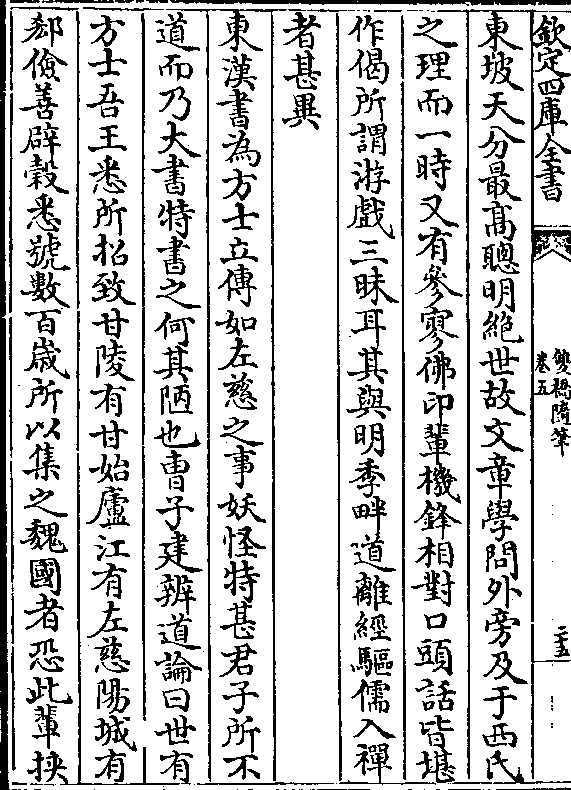 欽定四庫全書
雙橋隨筆
卷五
二十五
東坡天分最高聰明絶世故文章學問外旁及于西氏
之理而一時又有參寥佛印輩機鋒相對口頭話皆堪
作偈所謂游戲三昧耳其與明季畔道離經驅儒入禪
者甚異
東漢書為方士立傳如左慈之事妖怪特甚君子所不
道而乃大書特書之何其陋也曹子建辨道論曰世有
方士吾王悉所招致甘陵有甘始廬江有左慈陽城有
郄儉善辟穀悉號數百歲所以集之魏國者恐此輩挾